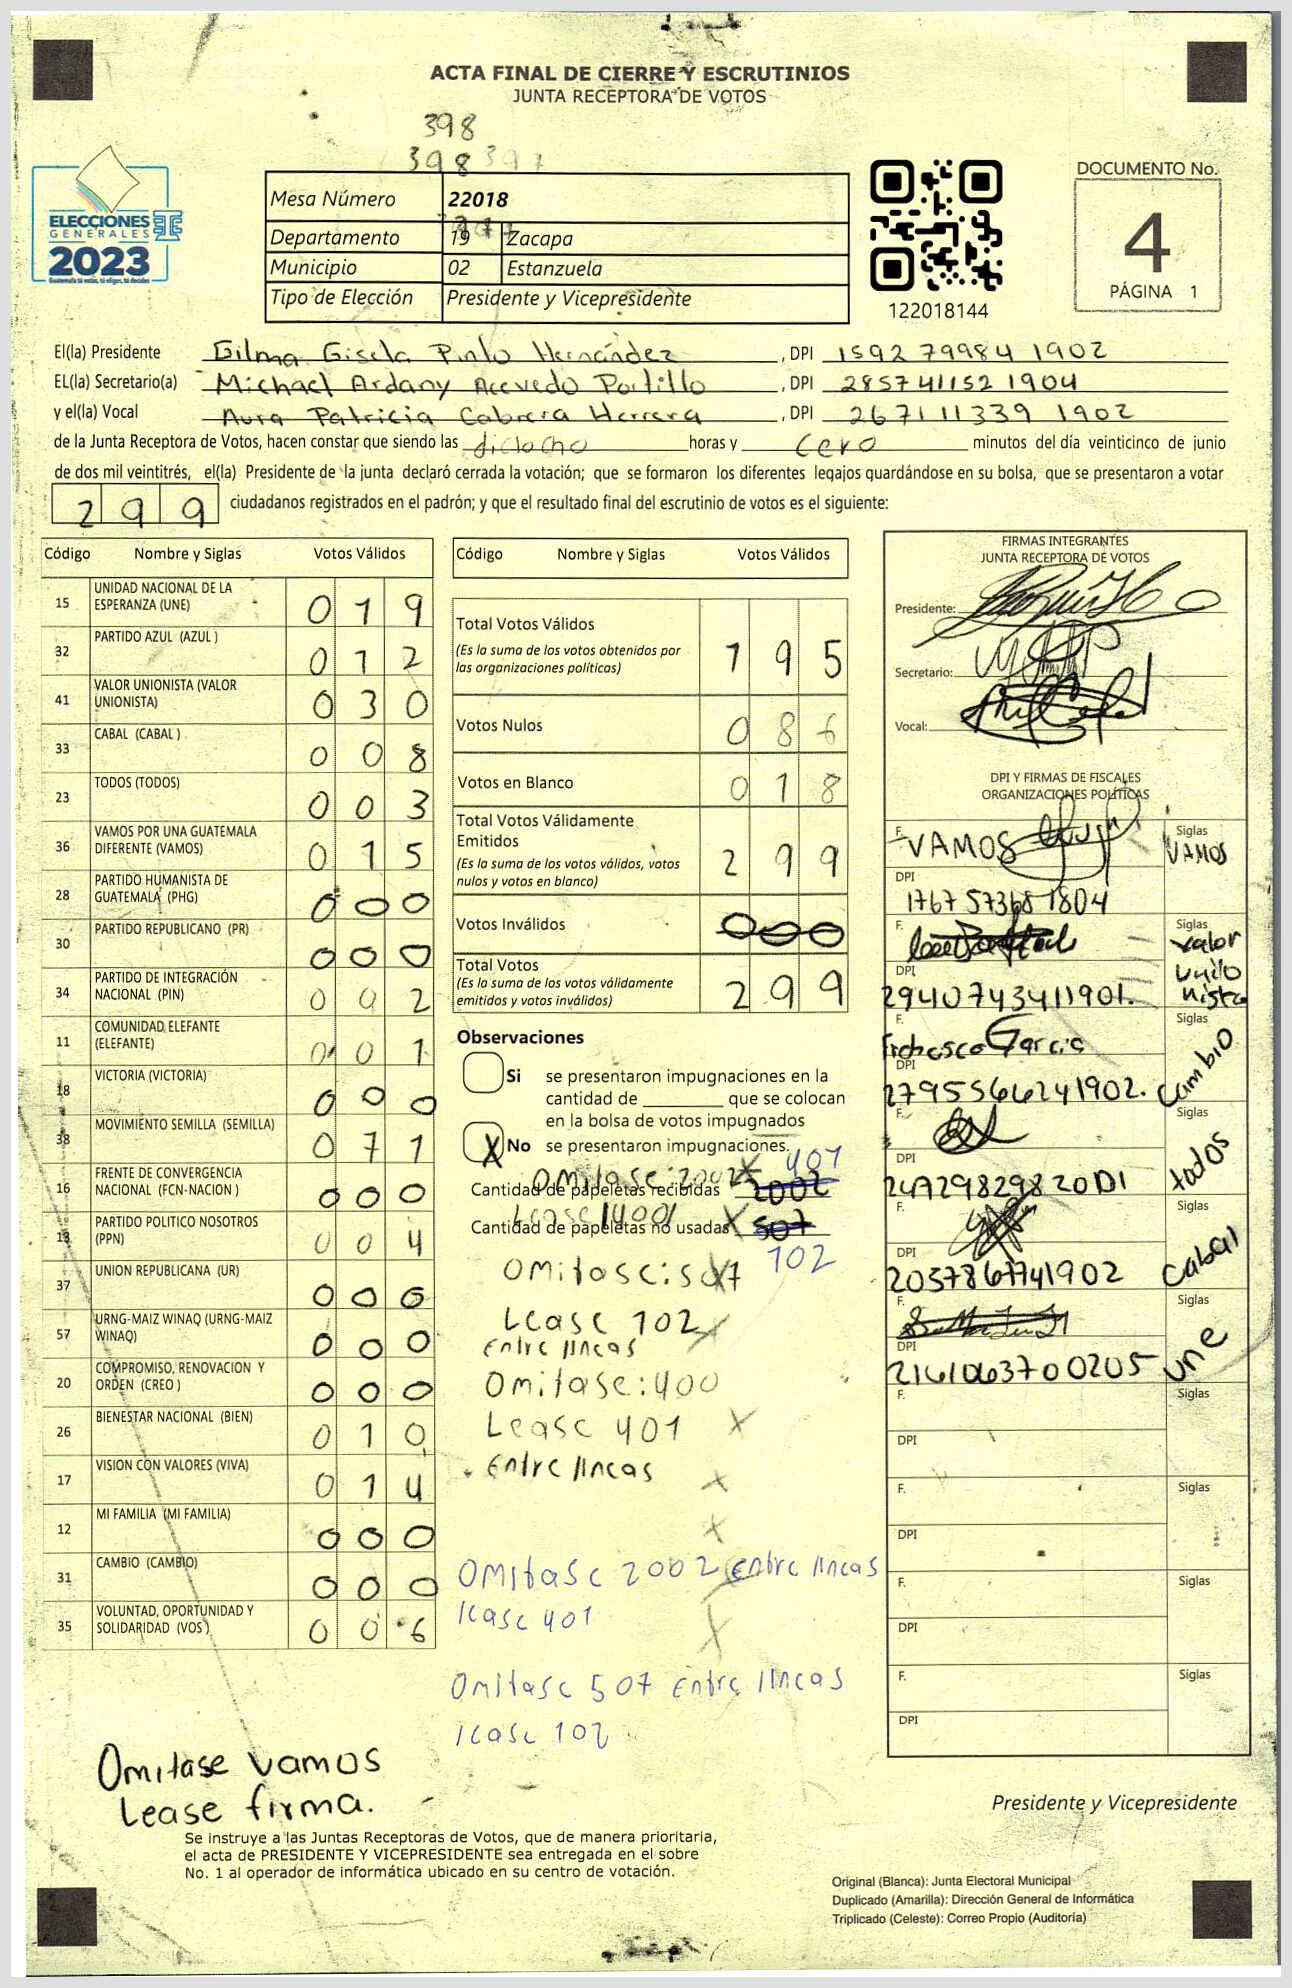 ACTA FINAL DE CIERRE Y ESCRUTINIOS
JUNTA RECEPTORA DE VOTOS
398
398 397
ELECCIONES
GENERALES
2023
Mesa Número 22018
Departamento 19 Zacapa
Municipio 02 Estanzuela
Tipo de Elección Presidente y Vicepresidente
122018144
DOCUMENTO No.
4
PÁGINA 1
El(la) Presidente Gilma Gisela Pinto Hernández, DPI 1592 79984 1902
EL(la) Secretario(a) Michael Ardany Acevedo Portillo, DPI 285741152 1904
y el(la) Vocal Aura Patricia Cabrera Herrera, DPI 267111339 1902
de la Junta Receptora de Votos, hacen constar que siendo las dieciocho horas y cero minutos del día veinticinco de junio
de dos mil veintitrés, el(la) Presidente de la junta declaró cerrada la votación; que se formaron los diferentes legajos guardándose en su bolsa, que se presentaron a votar
299 ciudadanos registrados en el padrón; y que el resultado final del escrutinio de votos es el siguiente:
Código Nombre y Siglas Votos Válidos
15 UNIDAD NACIONAL DE LA ESPERANZA (UNE) 019
32 PARTIDO AZUL (AZUL ) 012
41 VALOR UNIONISTA (VALOR UNIONISTA) 030
33 CABAL (CABAL ) 008
23 TODOS (TODOS) 003
36 VAMOS POR UNA GUATEMALA DIFERENTE (VAMOS) 015
28 PARTIDO HUMANISTA DE GUATEMALA (PHG) 000
30 PARTIDO REPUBLICANO (PR) 000
34 PARTIDO DE INTEGRACIÓN NACIONAL (PIN) 002
11 COMUNIDAD ELEFANTE (ELEFANTE) 001
18 VICTORIA (VICTORIA) 000
38 MOVIMIENTO SEMILLA (SEMILLA) 071
16 FRENTE DE CONVERGENCIA NACIONAL (FCN-NACION ) 000
13 PARTIDO POLITICO NOSOTROS (PPN) 004
37 UNION REPUBLICANA (UR) 000
57 URNG-MAIZ WINAQ (URNG-MAIZ WINAQ) 000
20 COMPROMISO, RENOVACION Y ORDEN (CREO ) 000
26 BIENESTAR NACIONAL (BIEN) 010
17 VISION CON VALORES (VIVA) 014
12 MI FAMILIA (MI FAMILIA) 000
31 CAMBIO (CAMBIO) 000
35 VOLUNTAD, OPORTUNIDAD Y SOLIDARIDAD (VOS ) 006
Omitase vamos
Lease firma.
Código Nombre y Siglas Votos Válidos
Total Votos Válidos 195
(Es la suma de los votos obtenidos por
las organizaciones políticas)
Votos Nulos 086
Votos en Blanco 018
Total Votos Válidamente
Emitidos 299
(Es la suma de los votos válidos, votos
nulos y votos en blanco)
Votos Inválidos 000
Total Votos 299
(Es la suma de los votos válidamente
emitidos y votos inválidos)
Observaciones
Si se presentaron impugnaciones en la
cantidad de ________ que se colocan
en la bolsa de votos impugnados
X No se presentaron impugnaciones.
Omitase: 2002 401
Cantidad de papeletas recibidas 2002
Lease 1400
Cantidad de papeletas no usadas X 507
102
Omitase: 507
Lease 102
Entre lineas
Omitase: 400
Lease 401 X
Entre lineas
Omitase 2002 entre lineas
lease 401
Omitase 507 Entre lineas
lease 102
FIRMAS INTEGRANTES
JUNTA RECEPTORA DE VOTOS
Presidente:
Secretario:
Vocal:
DPI Y FIRMAS DE FISCALES
ORGANIZACIONES POLÍTICAS
F. VAMOS Siglas VAMOS
DPI 1767 57368 1804
F. Siglas Valor Unionista
DPI 2940743411901.
F. Francisco Garcia Siglas Cambio
DPI 2795566241902.
F. Siglas todos
DPI 2472982982001
F. Siglas Cabal
DPI 2057867741902
F. Siglas une
DPI 2161063700205
F. Siglas
DPI
F. Siglas
DPI
F. Siglas
DPI
F. Siglas
DPI
Presidente y Vicepresidente
Se instruye a las Juntas Receptoras de Votos, que de manera prioritaria,
el acta de PRESIDENTE Y VICEPRESIDENTE sea entregada en el sobre
No. 1 al operador de informática ubicado en su centro de votación.
Original (Blanca): Junta Electoral Municipal
Duplicado (Amarilla): Dirección General de Informática
Triplicado (Celeste): Correo Propio (Auditoría)